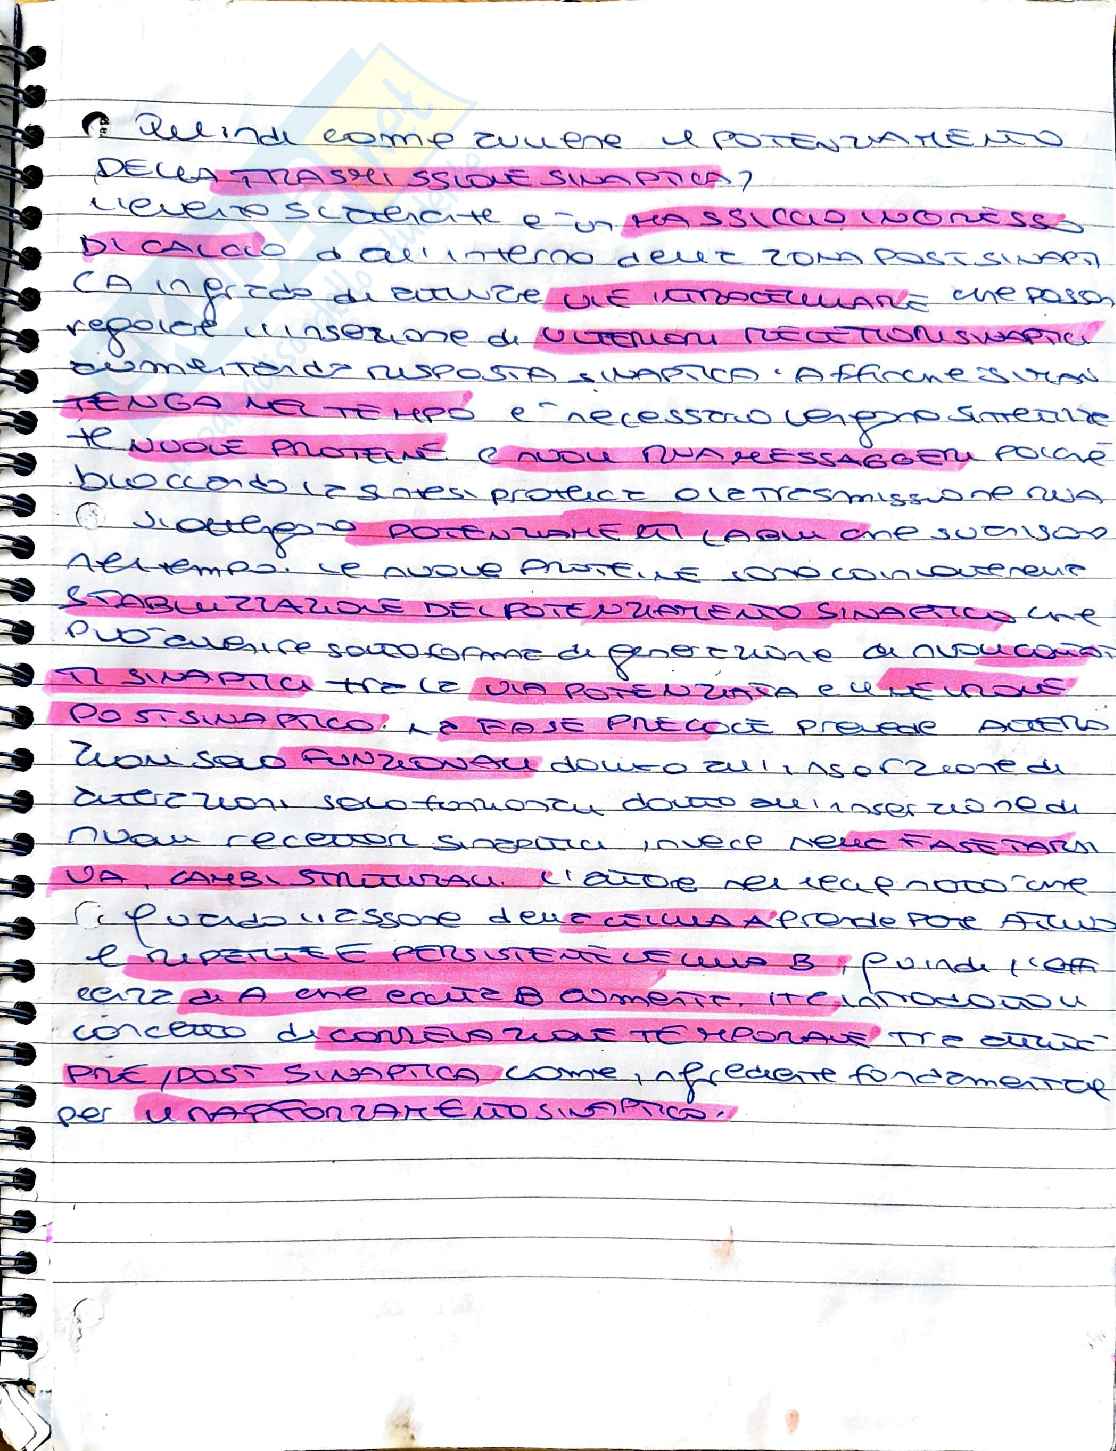 Quindi come avviene il POTENZIAMENTO
DELLA TRASMISSIONE SINAPTICA?
L'evento scatenante è un MASSICCIO INGRESSO
DI CALCIO all'interno della ZONA POSTSINAPTI
CA in grado di attivare VIE INTRACELLULARI che posson
regolare l'inserzione di ULTERIORI RECETTORI SINAPTICI
aumentando RISPOSTA SINAPTICA. Affinché si MAN
TENGA NEL TEMPO è necessario vengano sintetizza
te NUOVE PROTEINE e nuovi RNA MESSAGGERI poiché
bloccando la sintesi proteica o la trasmissione RNA
si ottengono POTENZIAMENTI LABILI che
nel tempo. Le NUOVE PROTEINE sono coinvolte nella
STABILIZZAZIONE DEL POTENZIAMENTO SINAPTICO che
può avvenire sotto forma di generazione di nuovi CONTAT
TI SINAPTICI tra la VIA POTENZIATA e il NEURONE
POSTSINAPTICO. La FASE PRECOCE prevede ALTERA
ZIONI solo FUNZIONALI dovuto all'inserzione di
alterazioni solo funzionali dovuto all'inserzione di
nuovi recettori sinaptici, invece nella FASE TARDI
VA, CAMBI STRUTTURALI. L'autore nel notò che
quando l'assone della CELLULA A prende PARTE ATTIVO
e RIPETUTE E PERSISTENTE CELLULA B, quindi l'effi
cienza di A che eccita B aumenta. introdotto il
concetto di CORRELAZIONE TEMPORALE tra attività
PRE/POST SINAPTICA come ingrediente fondamentale
per il RAFFORZAMENTO SINAPTICO.